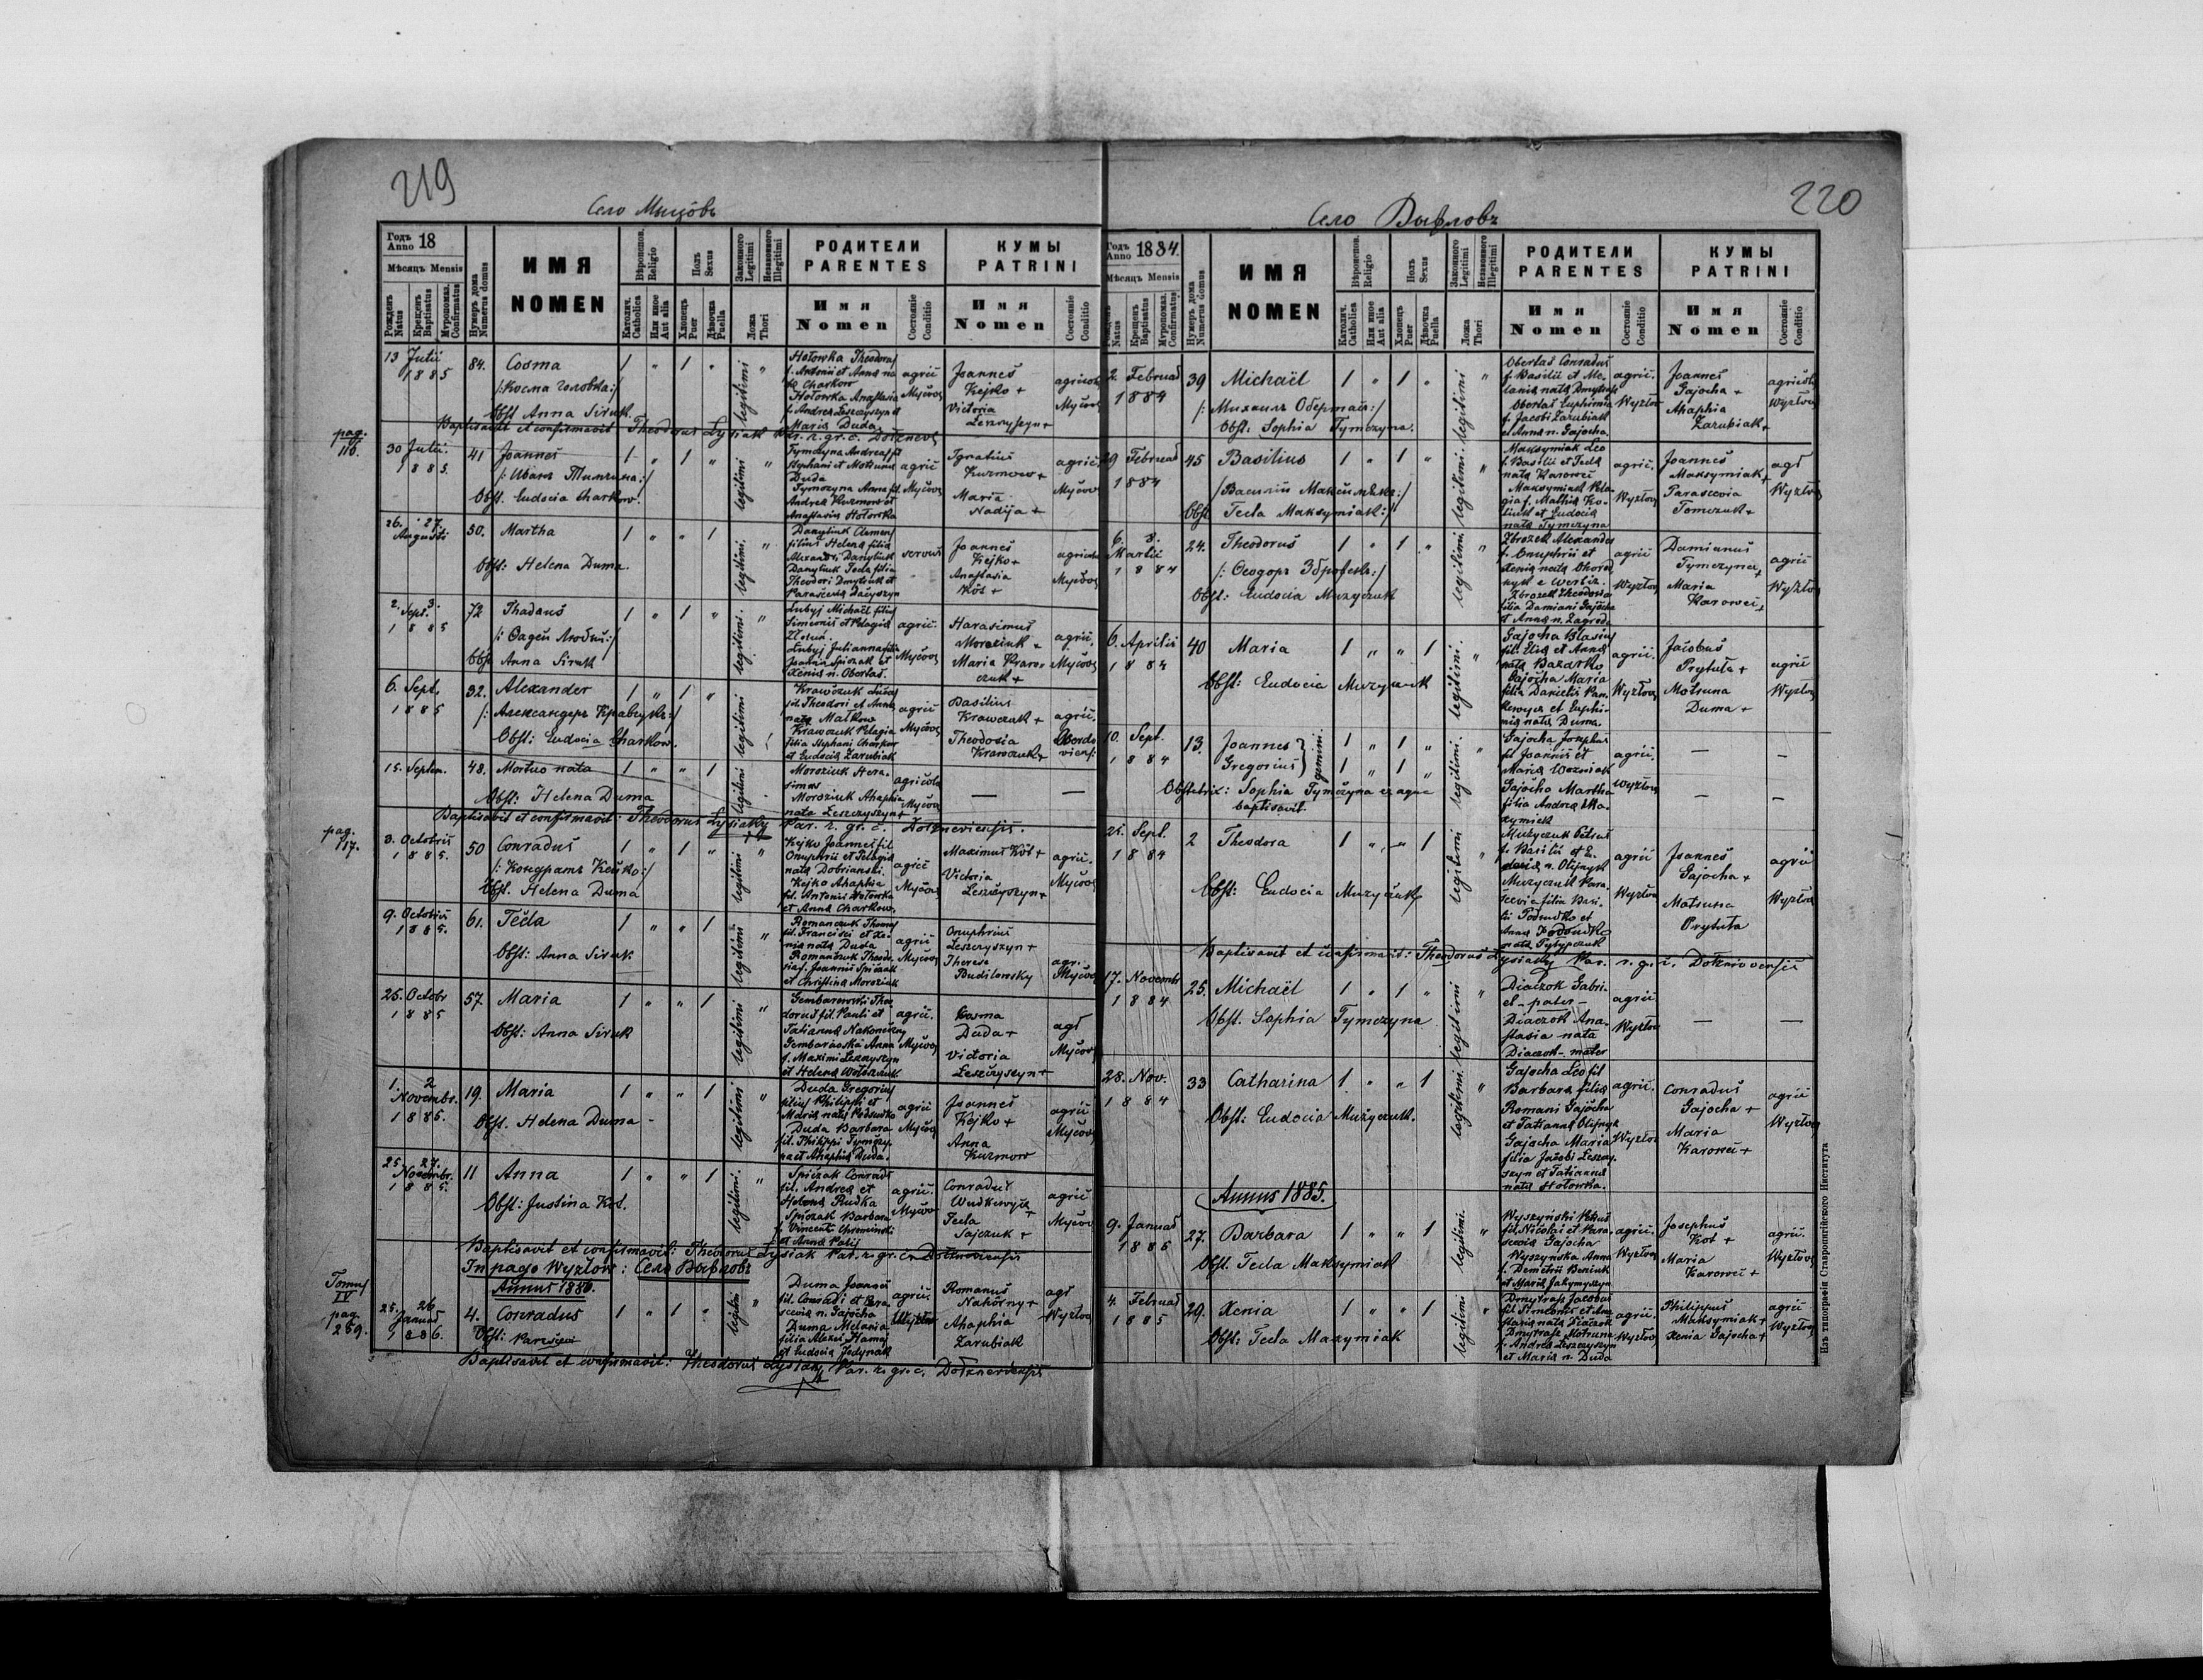 219
Село Мыцôвъ
Годъ Anno 18
Мѣсяцъ Mensis
Рожденъ Natus
Крещенъ Baptisatus
Мѵропомаз. Confirmatus
Нумеръ дома Numerus domus
ИМЯ
NOMEN
Вѣроиспов. Religio
Католич. Catholica
Или иное Aut alia
Полъ Sexus
Хлопецъ Puer
Дѣвочка Puella
Законного Legitimi
Незаконного Illegitimi
Ложа Thori
РОДИТЕЛИ
PARENTES
Имя
Nomen
Состояніе Conditio
КУМЫ
PATRINI
Имя
Nomen
Состояніе Conditio
13 Julii 1885
84.
Cosma
/:Косма Головка:/
Obst Anna Siruk.
legitimi
Hołowka Theodorus
f. Antonii et Anna na
ta Charkow
Hołowka Anastasia
f. Andrea Leszczyszyn et
Maria Duda
agric
Myców
Joannes
Kejko +
Victoria
Leszczyszyn +
agricola
Myców
Baptisavit et confirmavit Theodorus Lysiak Par. r. gr. c. Dołzneos
pag. 116.
30 Julii. 1885.
41
Joannes
/:Иванъ Тимчина:/
Obst. Eudocia Charkow.
legitimi
Tymczyna Andreas f.
Stephani et Motruna
Duda
Tymczyna Anna fil.
Andrea Kuzmow et
Anastasia Hołowka
agric
Myców
Ignatius
Kuzmow +
Maria
Nadija +
agric.
Myców
26. 27. Augusti
50.
Martha
Obst: Helena Duma.
legitimi.
Danyliuk Clemens
filius Helena filia
Alexandri Danyliuk
Danyliuk Tecla filia
Theodori Dmytruk et
Parascevia Daczyszyn
servus
Joannes
Kejko +
Anastasia
Kôt +
agricola
Myców
2. 3. Sept. 1885
72
Thadeus
/:Фадей Любый:/
Obst Anna Siruk
legitimi.
Lubyj Michaël filius
Simeonis et Pelagia
Lubyj Julianna filia
Joanna Spiczak et
Xenia n. Oberlas.
agric.
Myców
Harasimus
Moroziuk +
Maria Kraw
czuk +
agric.
Myców
6. Sept. 1885
32.
Alexander
/:Александеръ Кравчукъ:/
Obst: Eudocia Charkow.
legitimi
Krawczuk Lucas
fil. Theodori et Anna
nata Małkow
Krawczuk Pelagia
filia Stephani Charkow
et Eudocia Zarubiak
agric
Myców
Basilius
Krawczuk +
Theodosia
Krawczuk +
agric.
15. Septem.
48.
Mortuo nata
Obst: Helena Duma
legitimi
Moroziuk Hera
simus
Moroziuk Ahaphia
nata Leszczyszyn +
agricola
Myców
—
—
Baptisavit et confirmavit: Theodorus Lysiak Par. r. gr. c. Dołzneviensis.
pag. 117.
3. Octobris 1885.
50
Conradus
/:Кондратъ Кейко:/
Obst. Helena Duma
legitimi
Kejko Joannes fil
Onuphrii et Pelagia
nata Dobrianski.
Kejko Ahaphia
fil. Antonii Hołowka
et Anna Charkow.
agric
Myców
Maximus Kôt +
Victoria
Leszczyszyn +
agric.
Myców
9. Octobris 1885.
61.
Tecla
Obst: Anna Siruk
legitimi
Romanczuk Thomas
fil. Francisci et Xe-
nia nata Duda
Romanczuk Theodo
sia f. Joannis Spiczak
et Christina Moroziuk
agric
Myców
Onuphrius
Leszczyszyn +
Theresa
Budilowsky
agr.
Myców
25. Octobr 1885
57.
Maria
Obst: Anna Siruk
legitimi
Gembarowski Theo
dorus fil. Pauli et
Tatianna Nakoneczny
Gembarowska Anna
f. Maximi Leszczyszyn
et Helena Wołoszczuk
agric.
Myców
Cosma
Duda +
Victoria
Leszczyszyn +
agr
Myców
1. 2 Novembr. 1885.
19.
Maria
Obst. Helena Duma
legitimi
Duda Gregorius
filius Philippi et
Maria nata Podsudko
Duda Barbara
fil. Philippi Tymczy
na et Ahaphia Duda.
agric
Myców
Joannes
Kejko +
Anna
Kuzmow
agric
Myców
25. 27. Novembr. 1885.
11
Anna
Obst: Justina Kot.
legitimi.
Spiczak Conrad
fil. Andrea et
Helena Rudka
Spiczak Barbara
f. Vincenti
et Anna Palij
agric.
Myców
Conradus
Wudkewycz +
Tecla
Sajczuk +
agric
Myców
Baptisavit et confirmavit: Theodorus Lysiak Par. r. gr. c. Dołzneviensis
In pago Wyzłów: Село Выжлôвъ
Annus 1886.
Tomus IV pag. 259.
25. 26 Januar 1886.
4.
Conradus
Obst:
legitimi
Duma Joannes
fil. Conradi et Para
scevia n. Gajocha
Duma Melania
filia Alexei Hamaj
et Eudocia Jedynak
agric.
Wyzłow
Romanus
Nahôrny +
Ahaphia
Zarubiak
agr
Wyzłow
Baptisavit et confirmavit: Theodorus Lysiak, Par. r. gr. c. Dołzneviensis
220
Село Выжловъ
Годъ Anno 1884.
Мѣсяцъ Mensis
Рожденъ Natus
Крещенъ Baptisatus
Мѵропомаз. Confirmatus
Нумеръ дома Numerus domus
ИМЯ
NOMEN
Вѣроиспов. Religio
Католич. Catholica
Или иное Aut alia
Полъ Sexus
Хлопецъ Puer
Дѣвочка Puella
Законного Legitimi
Незаконного Illegitimi
Ложа Thori
РОДИТЕЛИ
PARENTES
Имя
Nomen
Состояніе Conditio
КУМЫ
PATRINI
Имя
Nomen
Состояніе Conditio
2. Februar 1884
39
Michaël
/:Михаилъ Оберташ:/
Obst: Sophia Tymczyna.
legitimi.
Obertas Conradus
f. Basilii et Me-
lania nata Dmytrasz
Obertas Euphimia
f. Jacobi Zarubiak
et Anna n. Gajocha.
agric.
Wyzłow
Joannes
Gajocha +
Ahaphia
Zarubiak +
agricola
Wyzłow
29 Februar 1884
45
Basilius
/Василій Максимякъ:/
Obst Tecla Maksymiak:/
legitimi.
Maksymiak Leo
f. Basilii et Tecla
nata Karoweć
Maksymiak Pela-
gia f. Mathia Ko-
et Eudocia
nata Tymczyna
agric.
Wyzłow
Joannes
Maksymiak +
Parascevia
Tomczuk +
agr
Wyzłow
6. 8. Martii 1884
24.
Theodorus
/:Ѳеодоръ Зброжекъ:/
Obst: Eudocia Muzyczuk
legitimi.
Zbrozek Alexander
f. Onuphrii et
Xenia nata Chored
nyk e Werbiz.
Zbrozek Theodosia
filia Damiani Gajocha
et Anna n. Zagreda
agric
Wyzłow
Damianus
Tymczyna +
Maria
Karoweć +
agric
Wyzłow
6. Aprilis 1884
40
Maria
Obst: Eudocia Muzyczuk
legitimi.
Gajocha Blasius
fil. Elia et Anna
nata Bazarko
Gajocha Maria
filia Danielis Pan-
kewycz et Euphi-
mia nata Duma.
agric.
Wyzłow
Jacobus
Prytuła +
Motruna
Duma +
agric
Wyzłow
10. Sept. 1884
13.
Joannes
Gregorius
gemini.
Obstetrix: Sophia Tymczyna ex aqua
baptisavit.
legitimi.
Gajocha Josephus
fil Joannis et
Maria Wozniak
Gajocha Martha
filia Andrea Ma-
xymiak
agric.
Wyzłow
—
—
21. Sept. 1884
2
Theodora
Obst: Eudocia Muzyczuk
legitimi
Muzyczuk Petrus
f. Basilii et E-
docia n. Olijnyk
Muzyczuk Para-
scevia filia Basi-
lii Podsudko et
Anna Podsudko
nata Pylypczuk
agric
Wyzłow
Joannes
Gajocha +
Motruna
Prytuła
agric
Wyzłow
Baptisavit et confirmavit: Theodorus Lysiak Par. r. g. c. Dołzniovensis
17. Novembr 1884
25.
Michaël
Obst. Sophia Tymczyna
legitimi
Diaczok Gabri-
el - pater -
Diaczok Ana-
stasia nata
Diaczok - mater
agric
Wyzłow
—
—
28. Nov. 1884
33
Catharina
Obst: Eudocia Muzyczuk.
legitimi.
Gajocha Leo fil
Barbara filia
Romani Gajocha
et Tatianna Olijnyk
Gajocha Maria
filia Jacobi Leszczy-
szyn et Tatianna
nata Hołowka.
agric.
Wyzłow
Conradus
Gajocha +
Maria
Karoweć +
agric
Wyzłow
Annus 1885.
9. Januar 1885
27.
Barbara
Obst. Tecla Maksymiak
legitimi.
Wyszyński Petrus
fil. Nicolai et Para-
scevia Gajocha
Wyszyńska Anna
f. Demetrii Beniuk
et Maria Jakymyszyn
agric.
Wyzłow
Josephus
Kot +
Maria
Karoweć +
agric.
Wyzłow
4. Februar 1885
29.
Xenia
Obst: Tecla Maxymiak
legitimi
Dmytrasz Jacobus
fil. Simeonis et Ana
stasia nata Diaczok
Dmytrasz Motruna
f. Andrea Leszczyszyn
et Maria n. Duda
agric.
Wyzłow
Philippus
Maksymiak +
Xenia Gajocha +
agric
Wyzłow
Изъ типографіи Ставропигійского Института